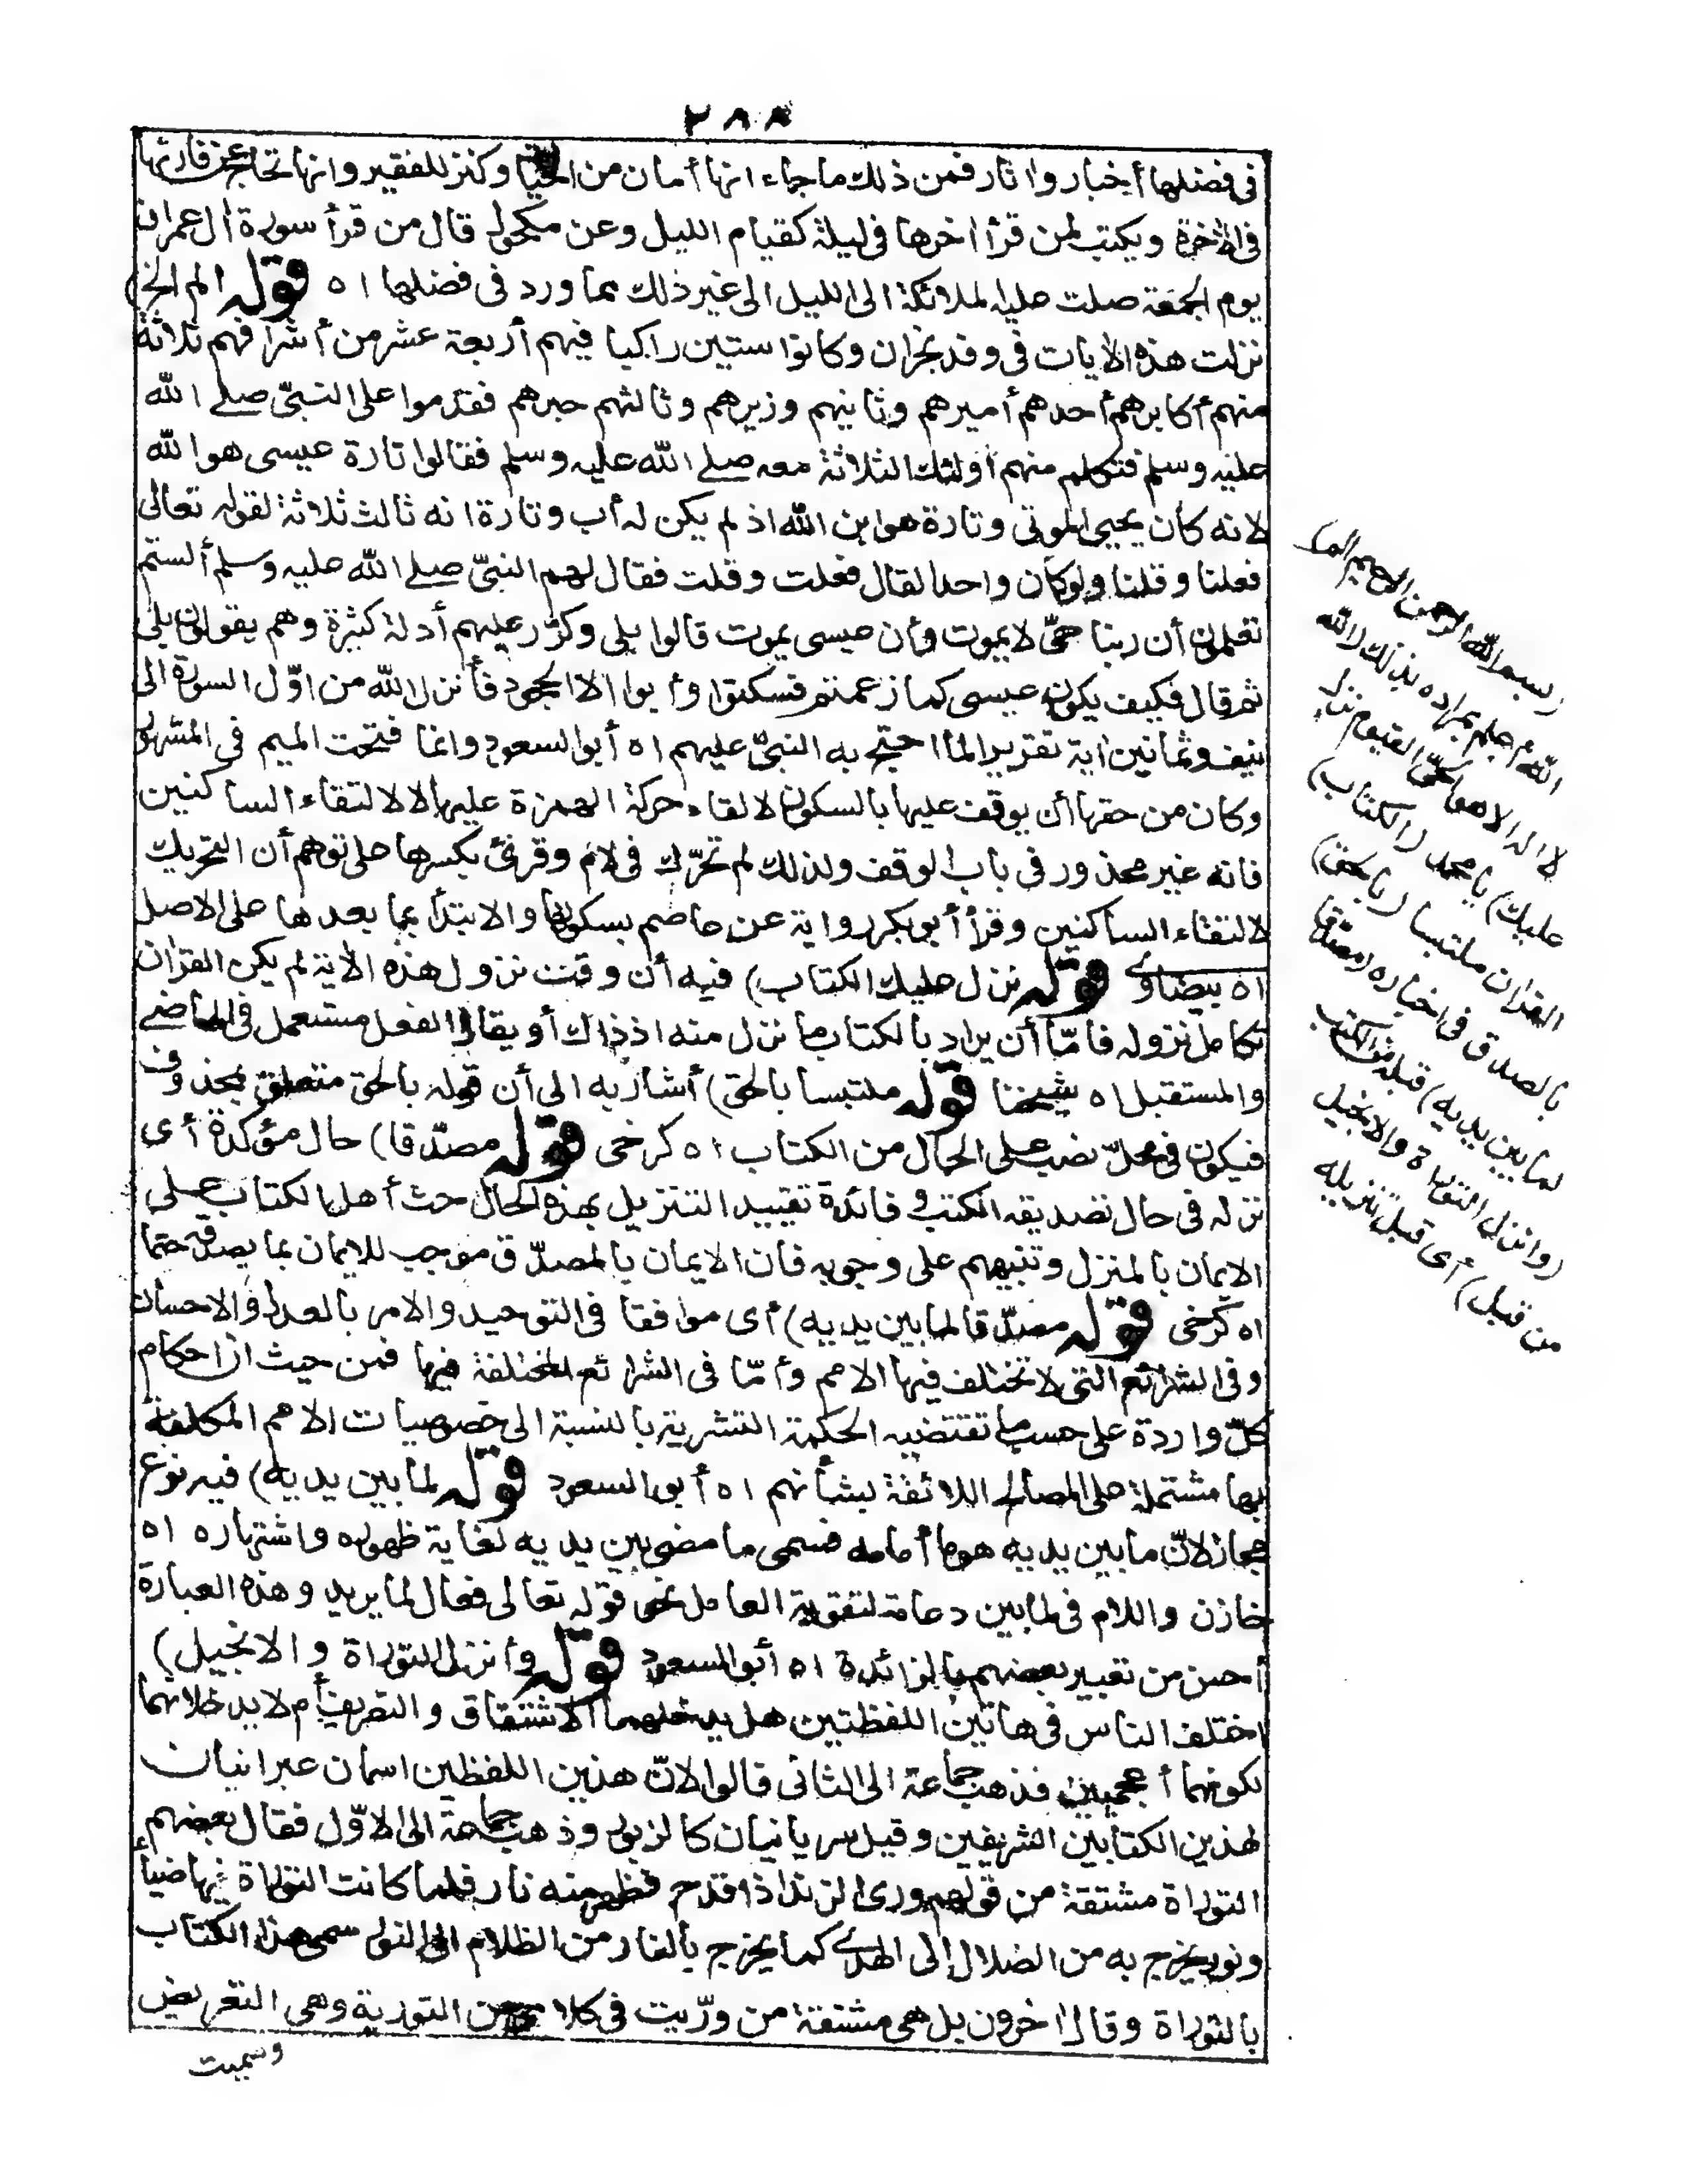 ٢٨٨
فى فضلها أخبار واثار فمن ذلك ما جاء انها أمان من الحيات وكنز للفقير وانها تحاج عن قارئها
فى الاخرة ويكتب لمن قرأ اخرها فى ليلة كقيام الليل وعن مكحول قال من قرأ سورة ال عمران
يوم الجمعة صلت عليه الملائكة الى الليل الى غير ذلك مما ورد فى فضلها اه قوله الم الخ)
نزلت هذه الايات فى وفد نجران وكانوا ستين راكبا فيهم أربعة عشر من أشرافهم ثلاثة
منهم أكابرهم أحدهم أميرهم وثانيهم وزيرهم وثالثهم حبرهم فقدموا على النبىّ صلى الله
عليه وسلم فتكلم منهم أولئك الثلاثة معه صلى الله عليه وسلم فقالوا تارة عيسى هو الله
لانه كان يحيى الموتى وتارة هو ابن الله اذ لم يكن له أب وتارة انه ثالث ثلاثة لقوله تعالى
فعلنا وقلنا ولو كان واحدا لقال فعلت وقلت فقال لهم النبىّ صلى الله عليه وسلم ألستم
تعلمون أن ربنا حىّ لا يموت وأن عيسى يموت قالوا بلى وكرّر عليهم أدلة كثيرة وهم يقولون بلى
ثم قال فكيف يكون عيسى كما زعمتم فسكتوا وأبوا الا الجحود فأنزل الله من اوّل السورة الى
نيف وثمانين اية تقريرا لما احتج به النبىّ عليهم اه أبو السعود وانما فتحت الميم فى المشهور
وكان من حقها أن يوقف عليها بالسكون لالقاء حركة الهمزة عليها لا لالتقاء الساكنين
فانه غير محذور فى باب الوقف ولذلك لم تحرّك فى لام وقرئ بكسرها على توهم أن التحريك
لالتقاء الساكنين وقرأ أبو بكر رواية عن عاصم بسكونها والابتدأ بما بعدها على الاصل
اه بيضاوى قوله نزل عليك الكتاب) فيه أن وقت نزول هذه الاية لم يكن القران
تكامل نزوله فامّا أن يراد بالكتاب ما نزل منه اذ ذاك أو يقال الفعل مستعمل فى الماضى
والمستقبل اه شيخنا قوله ملتبسا بالحق) أشار به الى أن قوله بالحق متعلق بمحذوف
فيكون فى محلّ نصب على الحال من الكتاب اه كرخى قوله مصدّقا) حال مؤكدة أى
نزله فى حال تصديقه الكتب و فائدة تقييد التنزيل بهذه الحال حث أهل الكتاب على
الايمان بالمنزل وتنبيههم على وجوبه فان الايمان بالمصدّق موجب للايمان بما يصدّقه حتما
اه كرخى قوله مصدّقا لما بين يديه) أى موافقا فى التوحيد والامر بالعدل والاحسان
وفى الشرائع التى لا تختلف فيها الامم وأمّا فى الشرائع المختلفة فيها فمن حيث ان احكام
كلّ واردة على حسب ما تقتضيه الحكمة التشرية بالنسبة الى خصوصيات الامم المكلفة
بها مشتملة على المصالح اللائقة بشأنهم اه أبو السعود قوله لما بين يديه) فيه نوع
مجاز لانّ ما بين يديه هو ما أمامه فسمى ما مضى بين يديه لغاية ظهوره واشتهاره اه
خازن واللام فى لما بين دعامة لتقوية العامل نحو قوله تعالى فعال لما يريد وهذه العبارة
أحسن من تعبير بعضهم بالزائدة اه أبو السعود قوله وأنزل التوراة والانجيل)
اختلف الناس فى هاتين اللفظتين هل يدخلهما الاشتقاق والتصريف أم لا يدخلانهما
لكونهما أعجميين فذهب جماعة الى الثانى قالوا لانّ هذين اللفظين اسمان عبرانيان
لهذين الكتابين الشريفين وقيل سريانيان كالزبور وذهب جماعة الى الاوّل فقال بعضهم
التوراة مشتقة من قولهم ورى الزند اذا قدح فظهر منه نار فلما كانت التوراة فيها ضياء
ونور يخرج به من الضلال إلى الهدى كما يخرج بالنار من الظلام الى النور سمى هذا الكتاب
بالتوراة وقال اخرون بل هى مشتقة من ورّيت فى كلامى من التورية وهى التعريض
وسميت
(بسم الله الرحمن الرحيم الم)
الله أعلم بمراده بذلك (الله
لا اله الا هو الحىّ القيوم نزل
عليك) يا محمد (الكتاب)
القران ملتبسا (بالحق)
بالصدق فى اخباره (مصدّقا
لما بين يديه) قبله من الكتب
(وانزل التوراة والانجيل
من قبل) أى قبل تنزيله